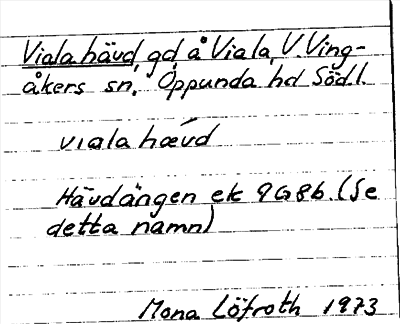 Viala hävd, gd å Viala, V. Ving-
åkers sn, Oppunda hd Södl.
vıala hævd
Hävdängen ek 9G8b. (Se
detta namn)
Mona Löfroth 1973